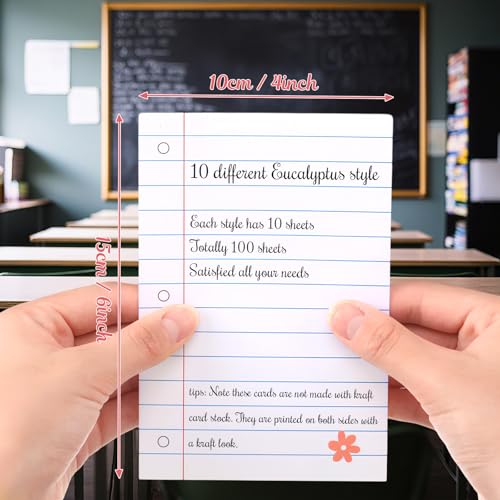 10cm / 4inch
15cm / 6inch
10 different Eucalyptus style
Each style has 10 sheets
Totally 100 sheets
Satisfied all your needs
tips: Note these cards are not made with kraft
card stock. They are printed on both sides with
a kraft look.